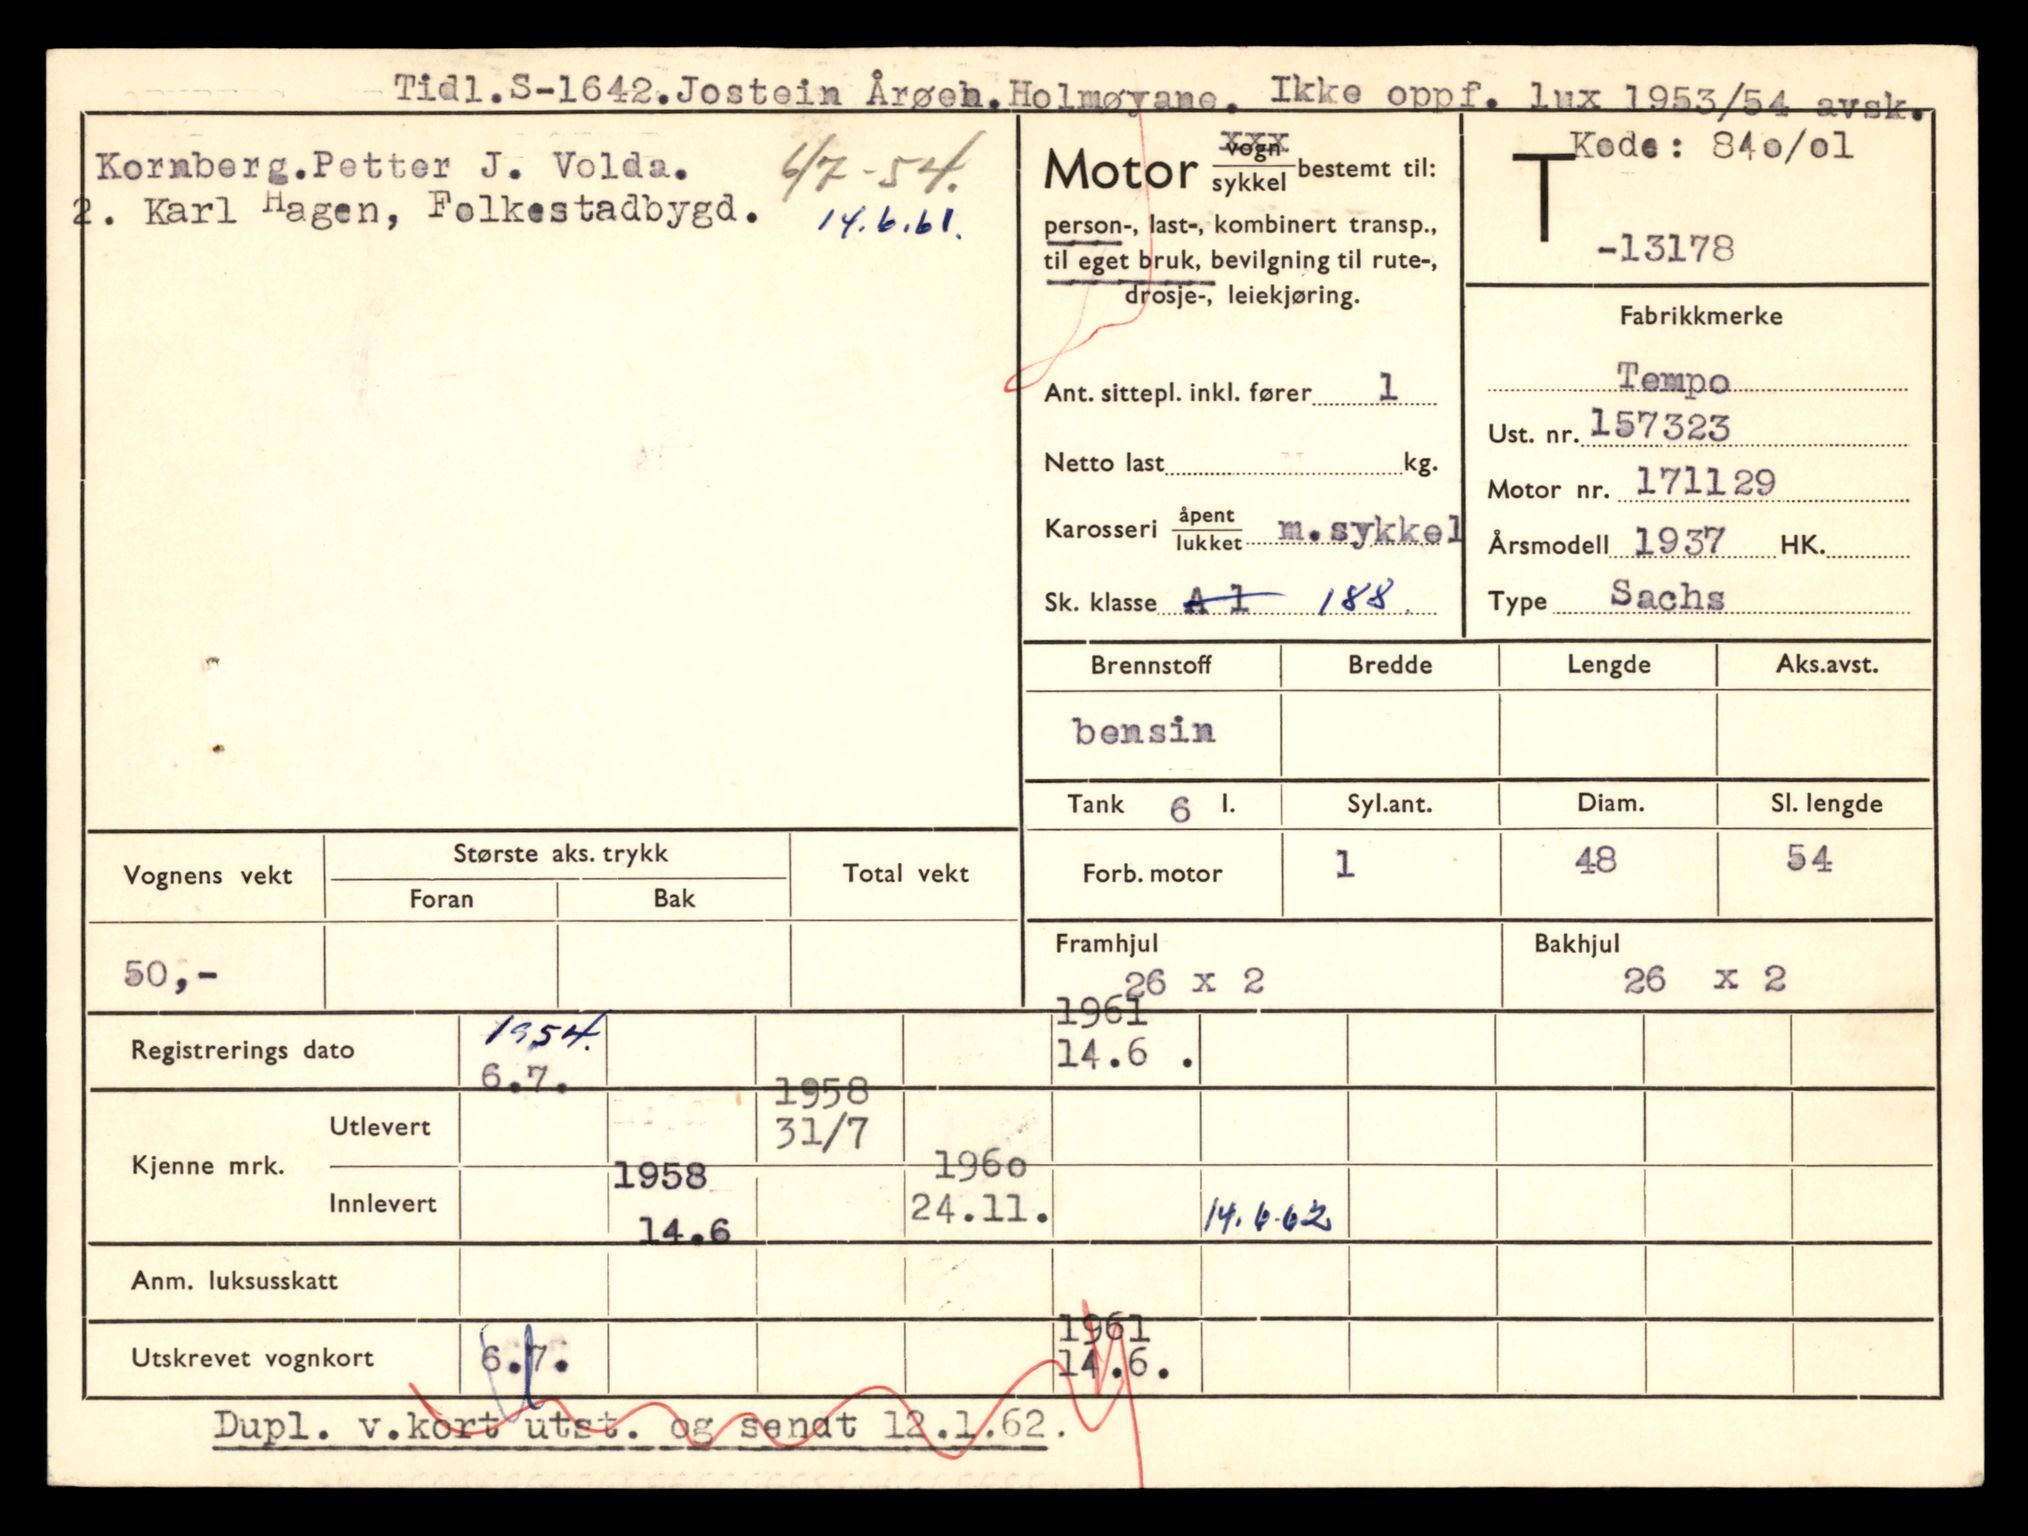 Tidl.S-1642.Jostein Årøen.Holmøyane. Ikke oppf. lux 1953/54 avsk.
Kornberg.Petter J. Volda. 6/7-54.
2. Karl Hagen, Folkestadbygd. 14.6.61.
Motor vogn xxx
sykkel bestemt til:
person-, last-, kombinert transp.,
til eget bruk, bevilgning til rute-,
drosje-, leiekjøring.
Ant. sittepl. inkl. fører 1
Netto last kg.
Karosseri åpent
lukket m.sykkel
Sk. klasse A 1 188.
Kode: 84o/o1
T
-13178
Fabrikkmerke
Tempo
Ust. nr. 157323
Motor nr. 171129
Årsmodell 1937 HK.
Type Sachs
Brennstoff Bredde Lengde Aks.avst.
bensin
Tank 6 l. Syl.ant. Diam. Sl. lengde
Forb. motor 1 48 54
Vognens vekt Største aks. trykk Total vekt
Foran Bak
50,-
Framhjul Bakhjul
26 x 2 26 x 2
1954. 1961
Registrerings dato 6.7. 14.6 .
1958
Utlevert 31/7
Kjenne mrk.
1958 1960
Innlevert 14.6 24.11. 14.6.62
Anm. luksusskatt
1961
Utskrevet vognkort 6.7. 14.6.
Dupl. v.kort utst. og sendt 12.1.62.